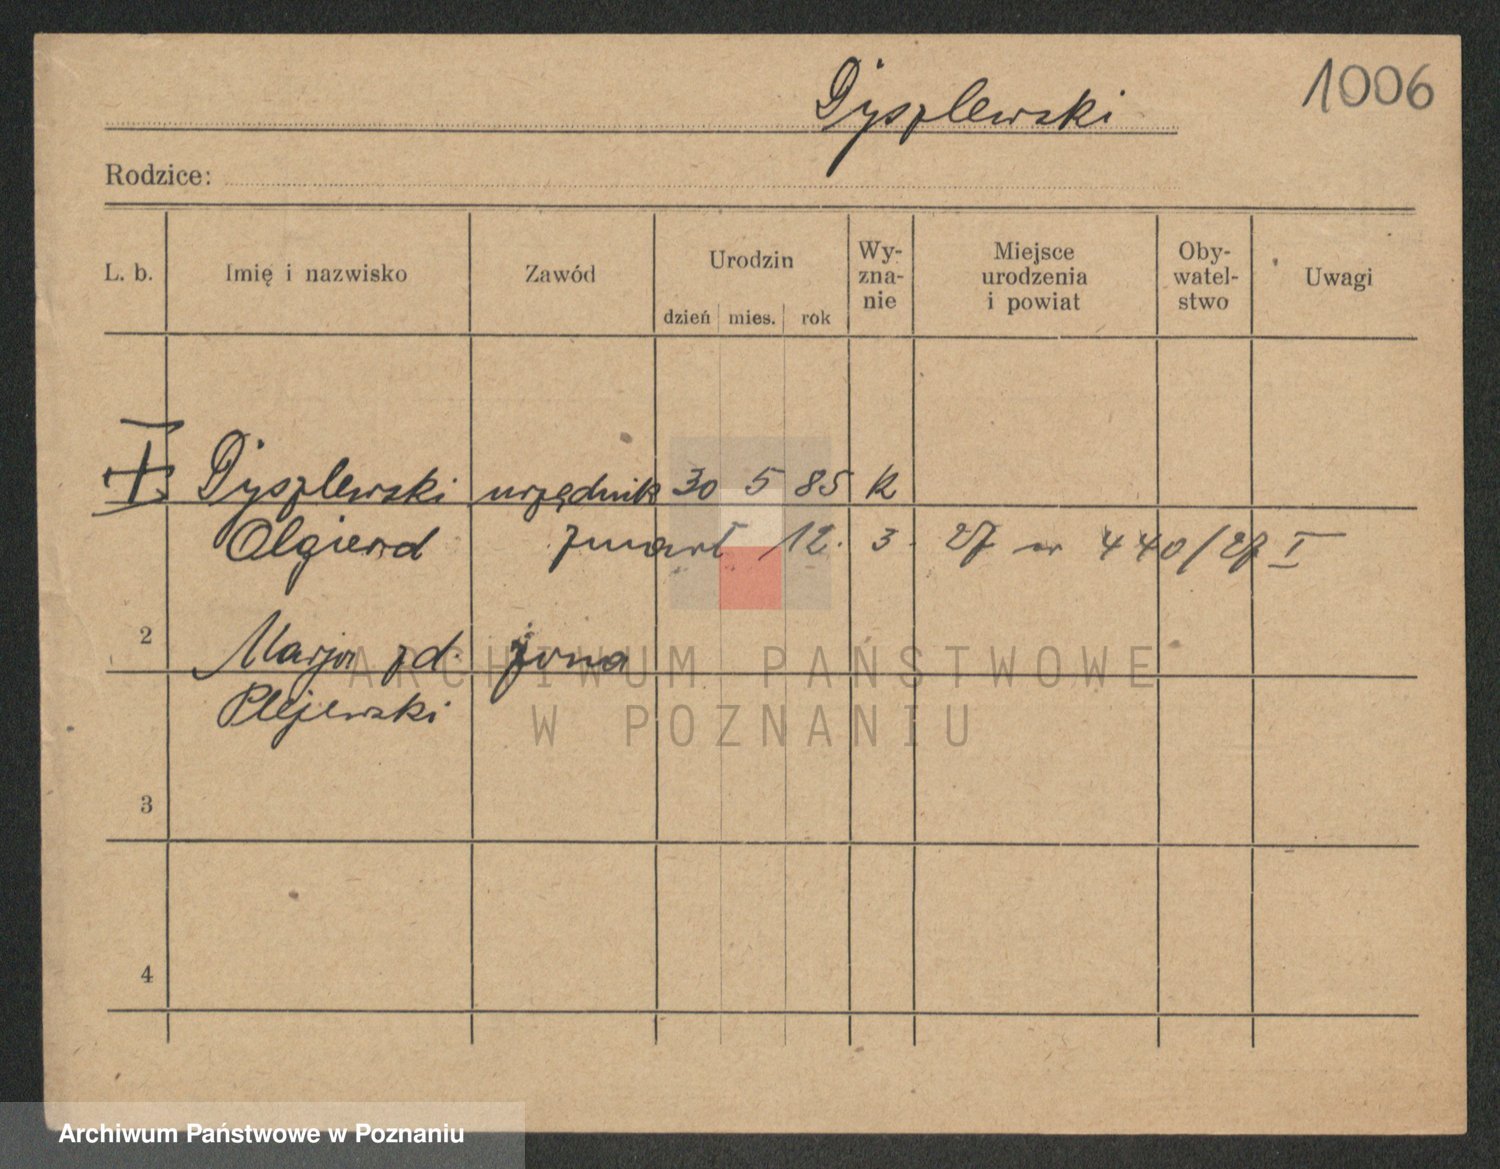 1006
Dyszlewski
Rodzice:
L. b.
Imię i nazwisko
Zawód
Urodzin
dzień mies. rok
Wy-
zna-
nie
Miejsce
urodzenia
i powiat
Oby-
watel-
stwo
Uwagi
Dyszlewski urzędnik 30 5 85 k
Olgierd zmarł 12. 3. 27 nr 440/27 I
2 Marja zd. żona
Plejewski
3
4
ARCHIWUM PAŃSTWOWE
W POZNANIU
Archiwum Państwowe w Poznaniu